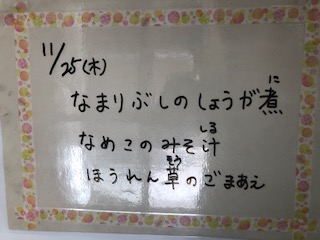 11/25(木)
なまりぶしのしょうが煮
に
なめこのみそ汁
しる
ほうれん草のごまあえ
そう